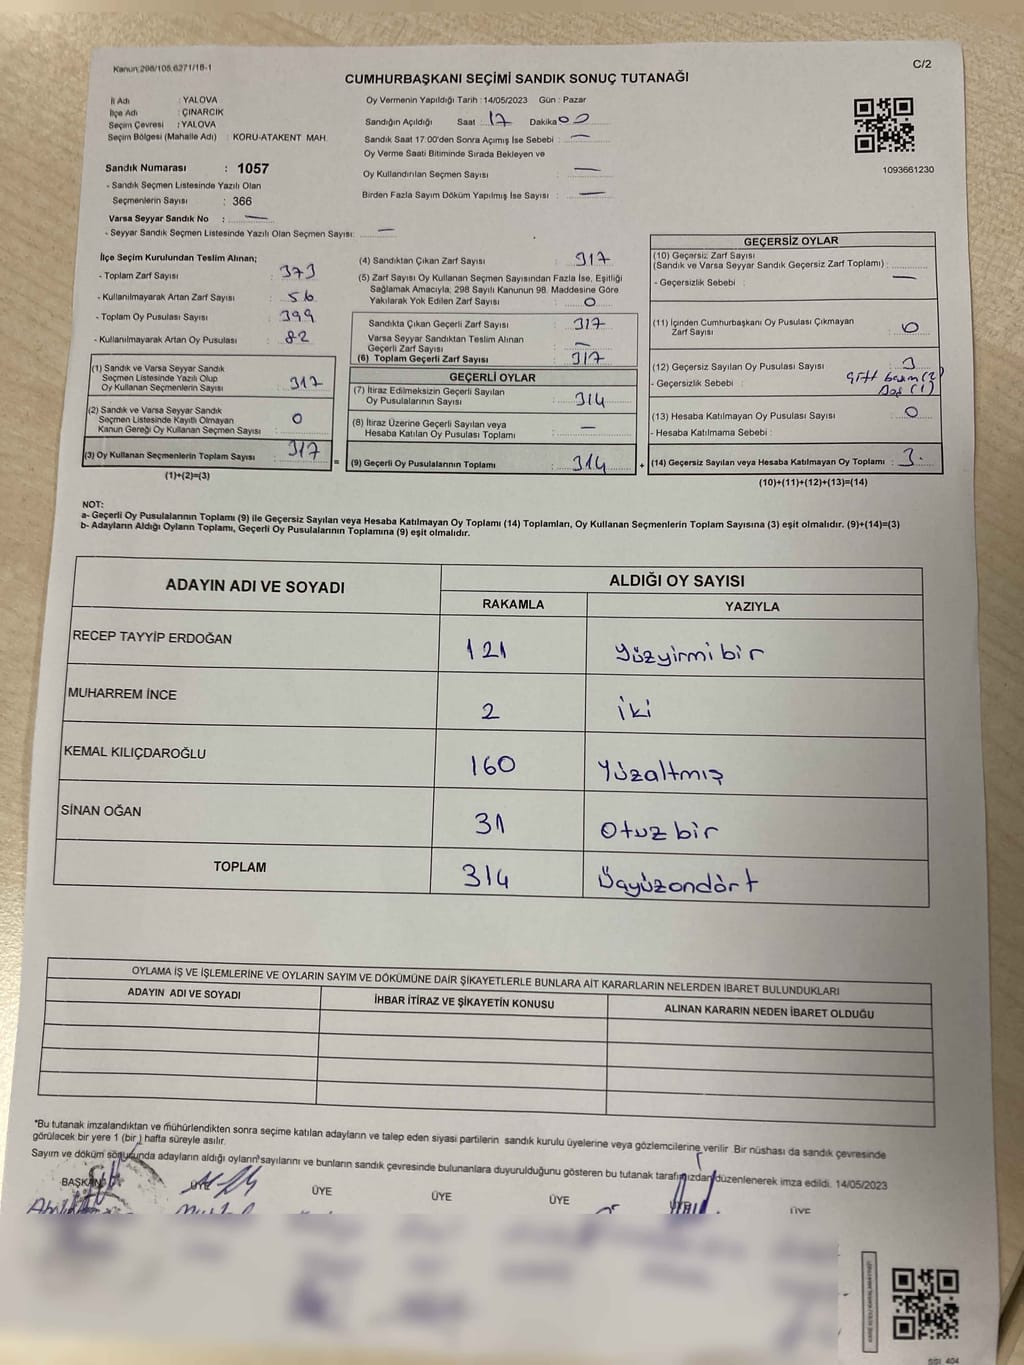 Kanun:298/105,6271/16-1
C/2
CUMHURBAŞKANI SEÇİMİ SANDIK SONUÇ TUTANAĞI
İl Adı : YALOVA
İlçe Adı : ÇINARCIK
Seçim Çevresi : YALOVA
Seçim Bölgesi (Mahalle Adı) : KORU-ATAKENT MAH.
Sandık Numarası : 1057
- Sandık Seçmen Listesinde Yazılı Olan
Seçmenlerin Sayısı : 366
Varsa Seyyar Sandık No : —
- Seyyar Sandık Seçmen Listesinde Yazılı Olan Seçmen Sayısı: —
Oy Vermenin Yapıldığı Tarih : 14/05/2023 Gün : Pazar
Sandığın Açıldığı Saat : 17 Dakika 00
Sandık Saat 17:00'den Sonra Açımış İse Sebebi : —
Oy Verme Saati Bitiminde Sırada Bekleyen ve
Oy Kullandırılan Seçmen Sayısı —
Birden Fazla Sayım Döküm Yapılmış İse Sayısı : —
1093661230
İlçe Seçim Kurulundan Teslim Alınan;
- Toplam Zarf Sayısı : 373
- Kullanılmayarak Artan Zarf Sayısı : 56
- Toplam Oy Pusulası Sayısı : 399
- Kullanılmayarak Artan Oy Pusulası : 82
(1) Sandık ve Varsa Seyyar Sandık
Seçmen Listesinde Yazılı Olup
Oy Kullanan Seçmenlerin Sayısı : 317
(2) Sandık ve Varsa Seyyar Sandık
Seçmen Listesinde Kayıtlı Olmayan
Kanun Gereği Oy Kullanan Seçmen Sayısı : 0
(3) Oy Kullanan Seçmenlerin Toplam Sayısı : 317
(1)+(2)=(3)
(4) Sandıktan Çıkan Zarf Sayısı : 317
(5) Zarf Sayısı Oy Kullanan Seçmen Sayısından Fazla İse, Eşitliği
Sağlamak Amacıyla, 298 Sayılı Kanunun 98. Maddesine Göre
Yakılarak Yok Edilen Zarf Sayısı : 0
Sandıkta Çıkan Geçerli Zarf Sayısı : 317
Varsa Seyyar Sandıktan Teslim Alınan
Geçerli Zarf Sayısı : —
(6) Toplam Geçerli Zarf Sayısı : 317
GEÇERLİ OYLAR
(7) İtiraz Edilmeksizin Geçerli Sayılan
Oy Pusulalarının Sayısı : 314
(8) İtiraz Üzerine Geçerli Sayılan veya
Hesaba Katılan Oy Pusulası Toplamı : —
= (9) Geçerli Oy Pusulalarının Toplamı : 314 +
GEÇERSİZ OYLAR
(10) Geçersiz Zarf Sayısı
(Sandık ve Varsa Seyyar Sandık Geçersiz Zarf Toplamı) :
- Geçersizlik Sebebi : —
(11) İçinden Cumhurbaşkanı Oy Pusulası Çıkmayan
Zarf Sayısı : 0
(12) Geçersiz Sayılan Oy Pusulası Sayısı : 3
- Geçersizlik Sebebi : Çift basım (2)
Boş (1)
(13) Hesaba Katılmayan Oy Pusulası Sayısı : 0
- Hesaba Katılmama Sebebi :
(14) Geçersiz Sayılan veya Hesaba Katılmayan Oy Toplamı : 3
(10)+(11)+(12)+(13)=(14)
NOT:
a- Geçerli Oy Pusulalarının Toplamı (9) ile Geçersiz Sayılan veya Hesaba Katılmayan Oy Toplamı (14) Toplamları, Oy Kullanan Seçmenlerin Toplam Sayısına (3) eşit olmalıdır. (9)+(14)=(3)
b- Adayların Aldığı Oyların Toplamı, Geçerli Oy Pusulalarının Toplamına (9) eşit olmalıdır.
ADAYIN ADI VE SOYADI
ALDIĞI OY SAYISI
RAKAMLA YAZIYLA
RECEP TAYYİP ERDOĞAN 121 Yüzyirmi bir
MUHARREM İNCE 2 iki
KEMAL KILIÇDAROĞLU 160 Yüzaltmış
SİNAN OĞAN 31 Otuz bir
TOPLAM 314 Üçyüzondört
OYLAMA İŞ VE İŞLEMLERİNE VE OYLARIN SAYIM VE DÖKÜMÜNE DAİR ŞİKAYETLERLE BUNLARA AİT KARARLARIN NELERDEN İBARET BULUNDUKLARI
ADAYIN ADI VE SOYADI İHBAR İTİRAZ VE ŞİKAYETİN KONUSU ALINAN KARARIN NEDEN İBARET OLDUĞU
*Bu tutanak imzalandıktan ve mühürlendikten sonra seçime katılan adayların ve talep eden siyasi partilerin sandık kurulu üyelerine veya gözlemcilerine verilir. Bir nüshası da sandık çevresinde
görülecek bir yere 1 (bir ) hafta süreyle asılır.
Sayım ve döküm sonucunda adayların aldığı oyların sayılarını ve bunların sandık çevresinde bulunanlara duyurulduğunu gösteren bu tutanak tarafımızdan düzenlenerek imza edildi. 14/05/2023
BAŞKAN ÜYE ÜYE ÜYE ÜYE ÜYE